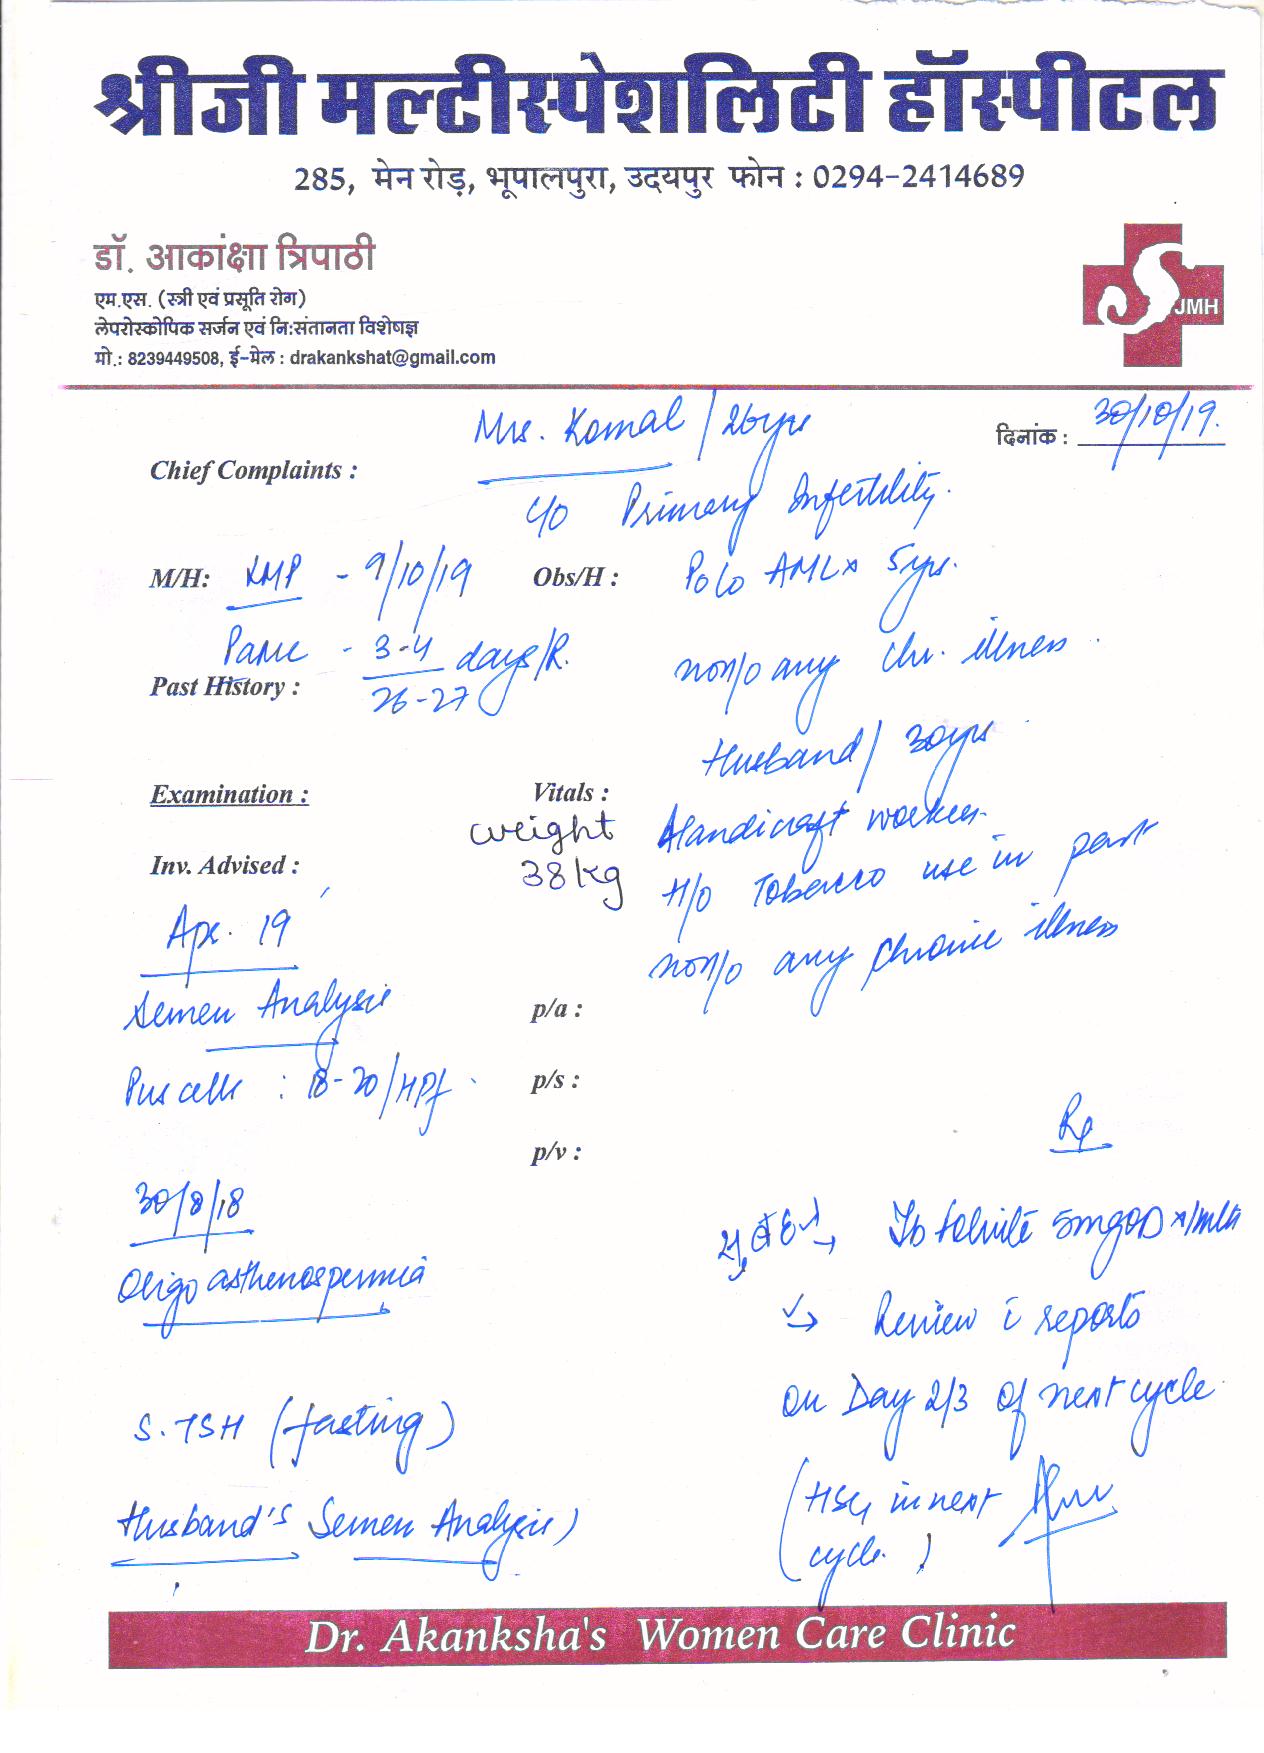 श्रीजी मल्टीस्पेशलिटी हॉस्पीटल
285, मेन रोड़, भूपालपुरा, उदयपुर फोन : 0294-2414689
डॉ. आकांक्षा त्रिपाठी
एम.एस. (स्त्री एवं प्रसूति रोग)
लेपरोस्कोपिक सर्जन एवं नि:संतानता विशेषज्ञ
मो.: 8239449508, ई-मेल : drakankshat@gmail.com
JMH
Mrs. Komal / 26yrs
दिनांक : 30/10/19.
Chief Complaints :
c/o Primary Infertility.
M/H: LMP - 9/10/19 Obs/H : P0L0 AML x 5yrs.
PMC - 3-4 days/R.
26-27
Past History :
no h/o any chr. illness.
Husband / 30yrs
Examination : Vitals :
weight
38kg
Handicraft worker.
Inv. Advised :
H/o Tobacco use in past
no h/o any chronic illness
Apr. 19
Semen Analysis
p/a :
Pus cells : 18-20/HPf.
p/s :
p/v :
Rx
30/8/18
Oligoasthenospermia
Tb folvite 5mg OD x 1mth
Review c reports
on Day 2/3 of next cycle
S. TSH (fasting)
Husband's Semen Analysis)
(HSG in next
cycle.)
Dr. Akanksha's Women Care Clinic